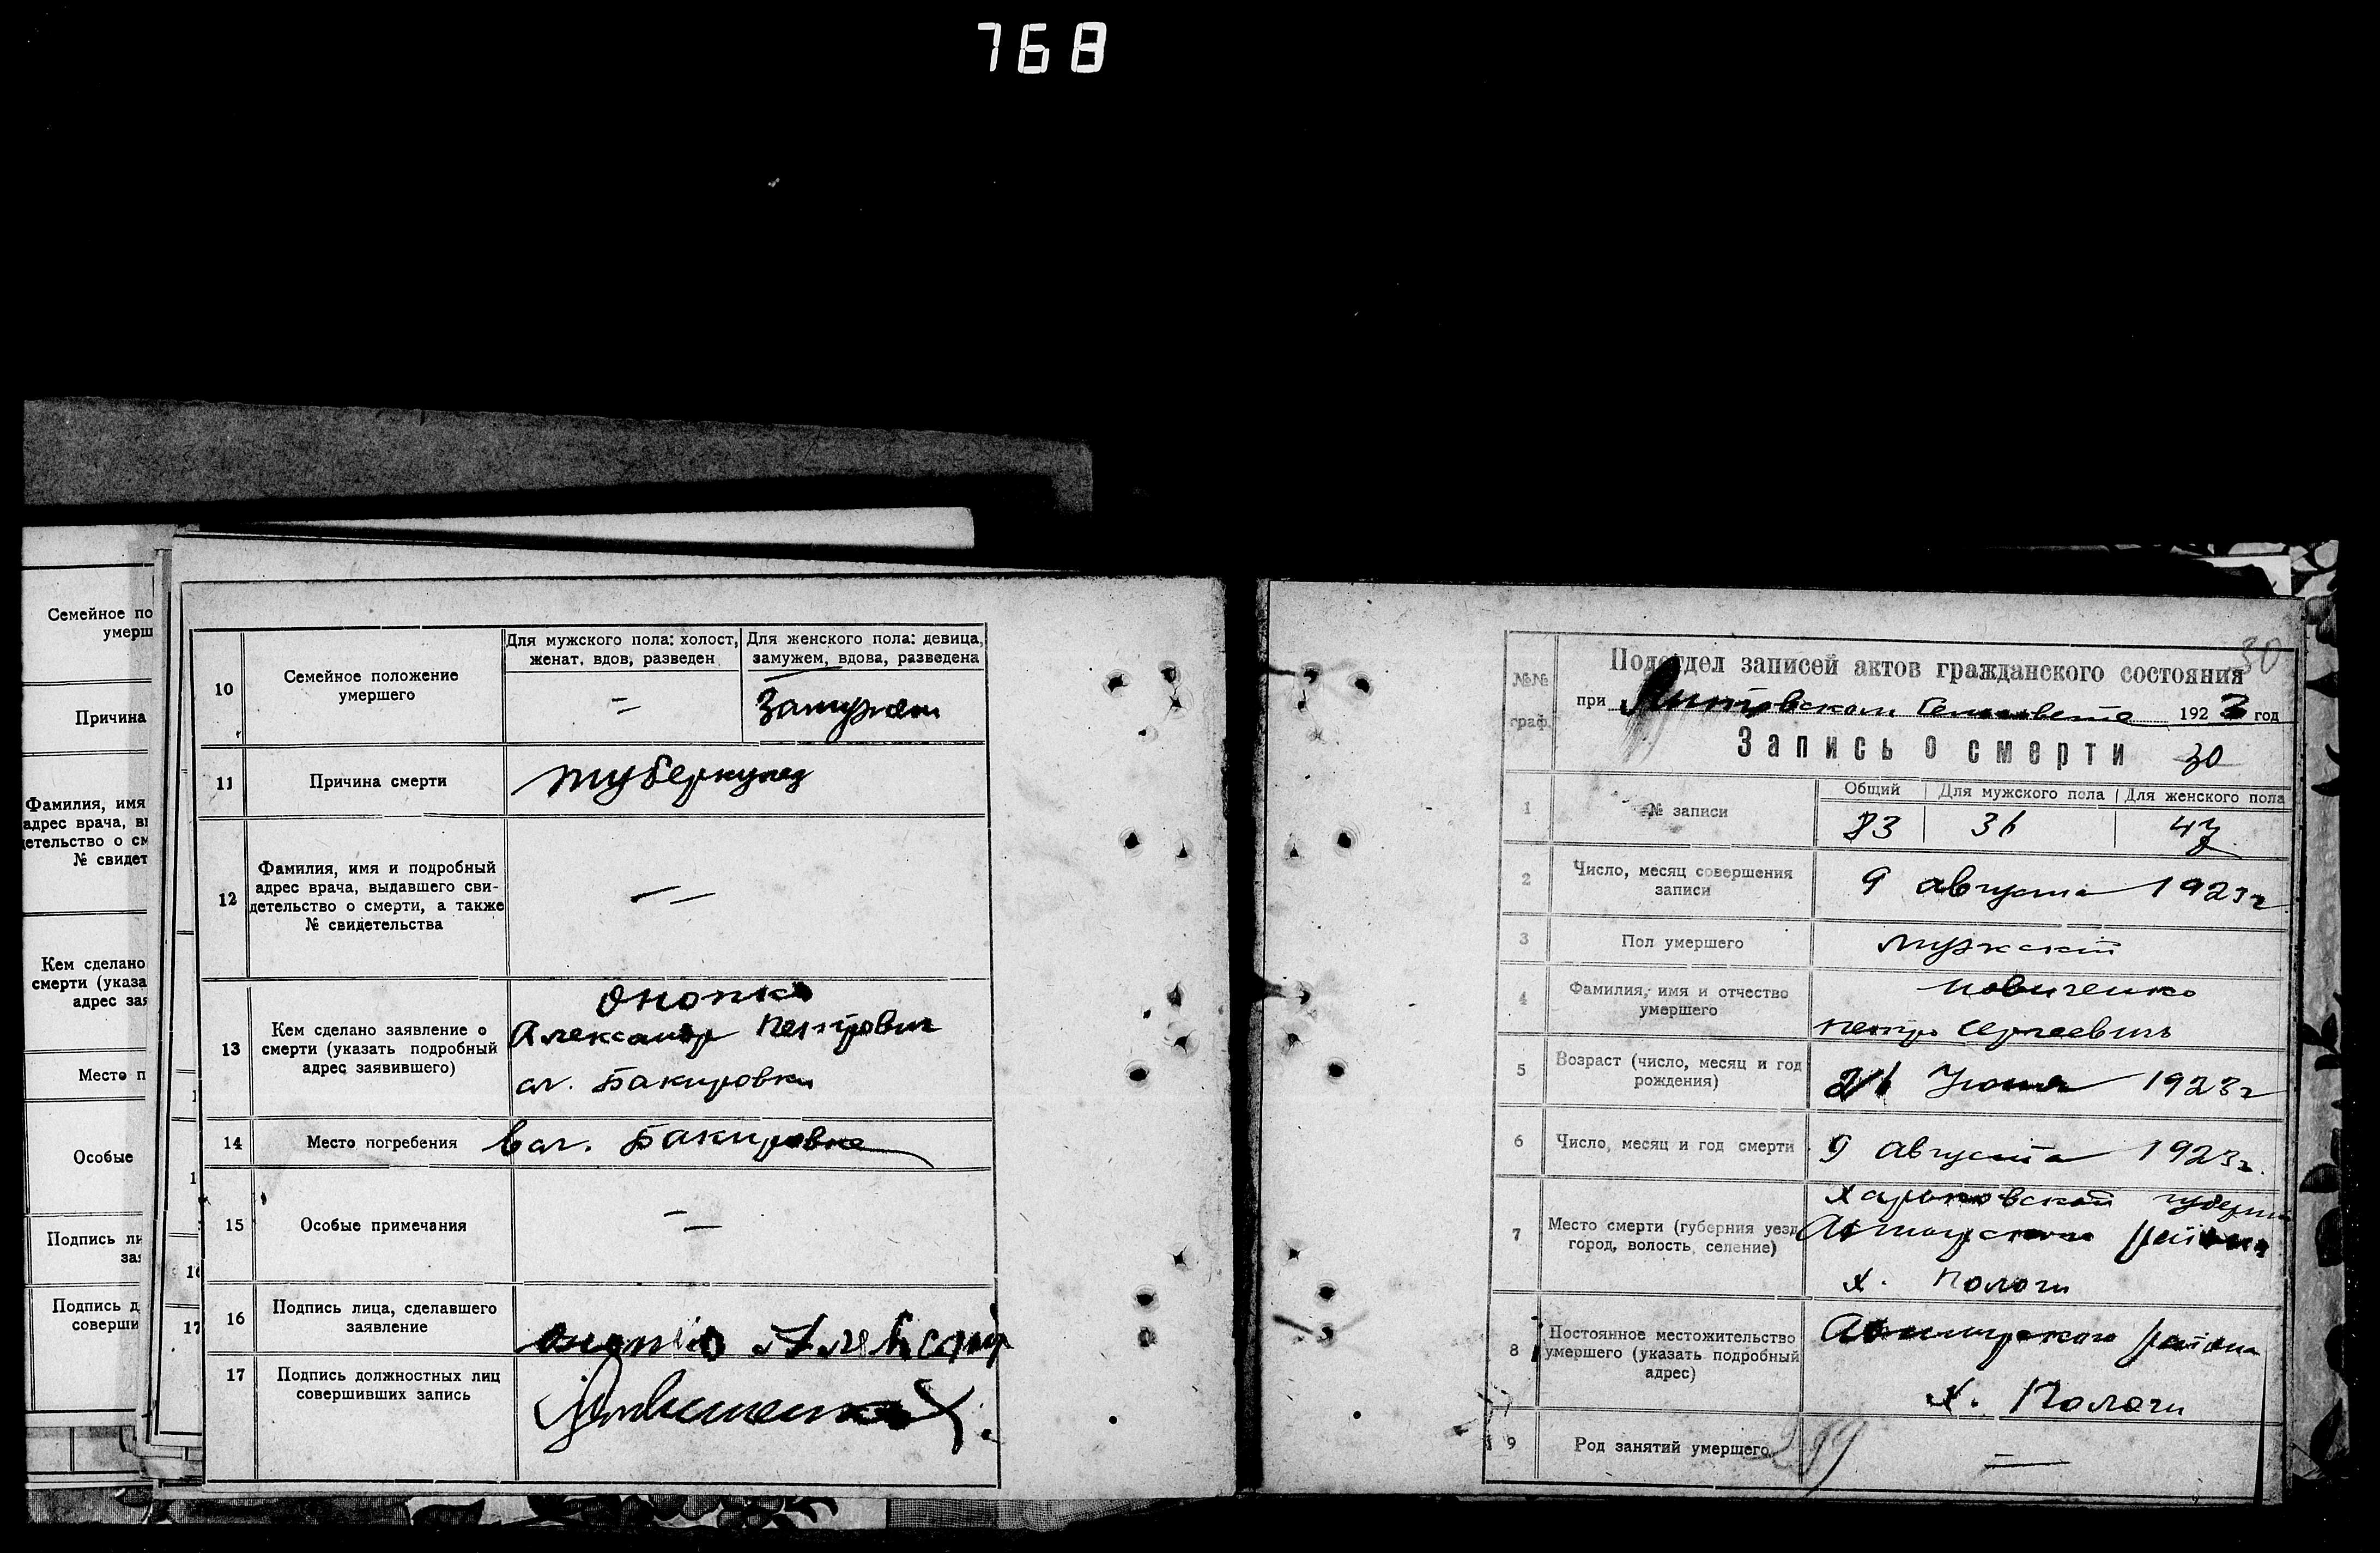 768
Семейное по
умерш
Причина
Фамилия, имя
адрес врача, вы
детельство о см
№ свидет
Кем сделано
смерти (указа
адрес зая
Место п
Особые
Подпись ли
зая
Подпись д
соверши
17
10
Семейное положение
умершего
Для мужского пола: холост,
женат, вдов, разведен
Для женского пола: девица,
замужем, вдова, разведена
Замужем
11
Причина смерти
туберкулез
12
Фамилия, имя и подробный
адрес врача, выдавшего сви-
детельство о смерти, а также
№ свидетельства
13
Кем сделано заявление о
смерти (указать подробный
адрес заявившего)
Онопко
Александр Петрович
сл. Бакировки
14
Место погребения
в сл. Бакировке
15
Особые примечания
16
Подпись лица, сделавшего
заявление
17
Подпись должностных лиц
совершивших запись
30
№№
граф.
Подотдел записей актов гражданского состояния
при Сельсовете 1923 год
Запись о смерти 30
1
№ записи
Общий
Для мужского пола
Для женского пола
83
36
47
2
Число, месяц совершения
записи
9 августа 1923 г
3
Пол умершего
мужской
4
Фамилия, имя и отчество
умершего
Новиченко
Петр Сергеевич
5
Возраст (число, месяц и год
рождения)
Июня 1923 г
6
Число, месяц и год смерти
9 августа 1923 г.
7
Место смерти (губерния уезд
город, волость, селение)
Харьковской губернии
района
х. Пологи
8
Постоянное местожительство
умершего (указать подробный
адрес)
района
х. Пологи
9
Род занятий умершего